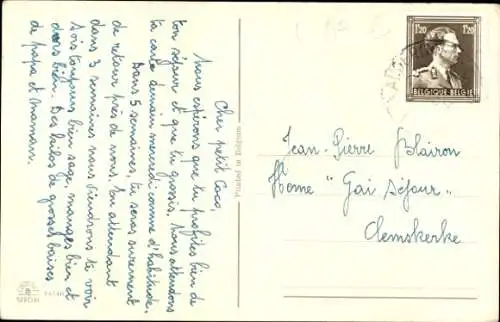 Cher petit Coco,
Nous espérons que tu profites bien de
ton séjour et que tu grossis. Nous attendons
ta carte demain mercredi comme d'habitude.
Dans 5 semaines, tu seras sûrement
de retour près de nous. En attendant
dans 3 semaines nous viendrons te voir
Sois toujours bien sage, manges bien et
dors bien. Des kilos de grosses baises
de papa et maman.
Printed in Belgium
1.20 1.20
BELGIQUE-BELGIE
Jean-Pierre Blairon
Home "Gai Séjour"
Clemskerke